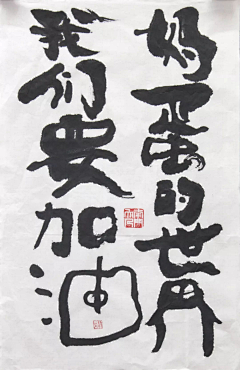 妈蛋的世界
我们要加油